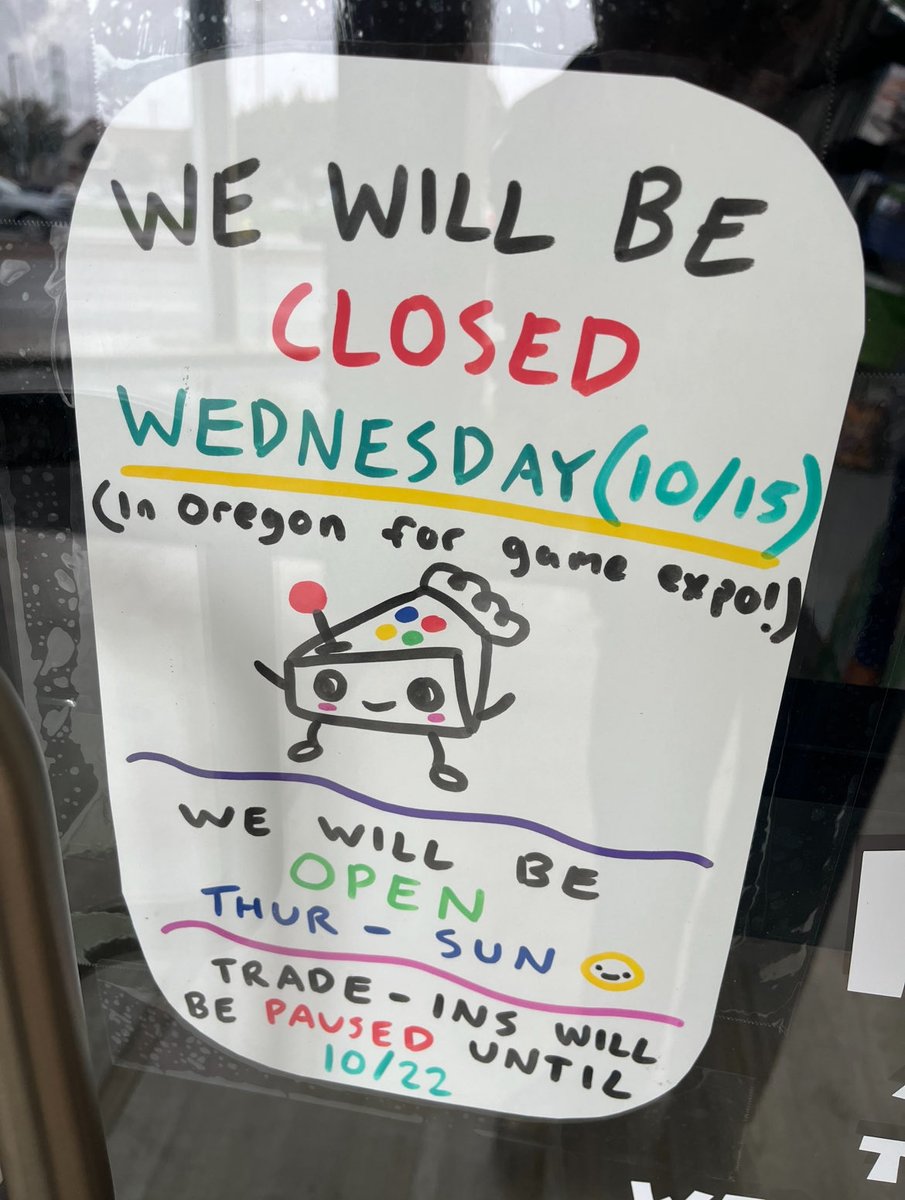 WE WILL BE
CLOSED
WEDNESDAY (10/15)
(In Oregon for game expo!)
WE WILL BE
OPEN
THUR - SUN
TRADE-INS WILL
BE PAUSED UNTIL
10/22